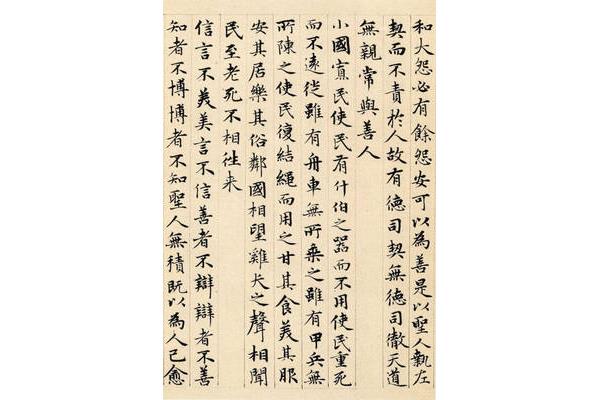 和大怨必有餘怨安可以為善是以聖人執左
契而不責於人故有德司契無德司徹天道
無親常與善人
小國寡民使民有什伯之器而不用使民重死
而不遠徙雖有舟車無所乗之雖有甲兵無
所陳之使民復結繩而用之甘其食美其服
安其居樂其俗鄰國相望雞犬之聲相聞
民至老死不相往来
信言不美美言不信善者不辯辯者不善
知者不博博者不知聖人無積既以為人己愈